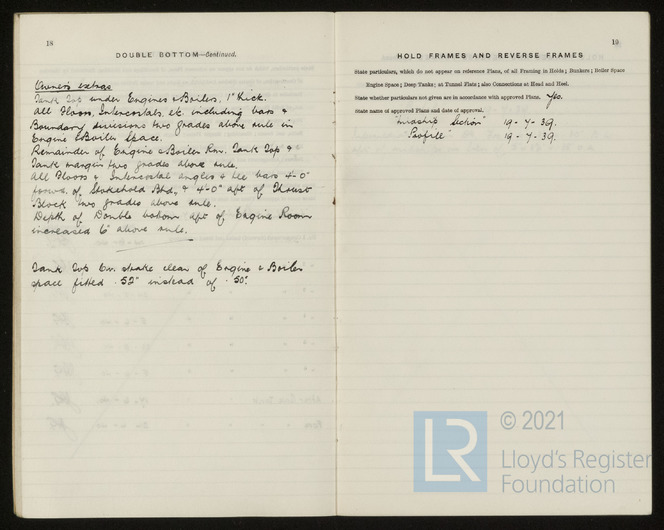 18
DOUBLE BOTTOM—Continued.
Owners extras
Tank Top under Engines & Boilers. 1" thick.
All Floors, Intercostals, etc. including bars &
Boundary divisions two grades above rule in
Engine & Boiler Space.
Remainder of Engine & Boiler Rm. Tank Top &
Tank margin two grades above rule.
All Floors & Intercostal angles & tee bars 4'-0"
forwd. of Stokehold Bhd, & 4'-0" aft of Thrust
Block two grades above rule.
Depth of Double bottom aft of Engine Room
increased 6" above rule.
Tank Top strake clear of Engine & Boiler
space fitted .52" instead of .50".
19
HOLD FRAMES AND REVERSE FRAMES
State particulars, which do not appear on reference Plans, of all Framing in Holds; Bunkers; Boiler Space
Engine Space; Deep Tanks; at Tunnel Flats; also Connections at Head and Heel.
State whether particulars not given are in accordance with approved Plans. Yes.
State name of approved Plans and date of approval.
"Midship Section" 19-7-39.
"Profile" 19-7-39.
© 2021
LR
Lloyd's Register
Foundation